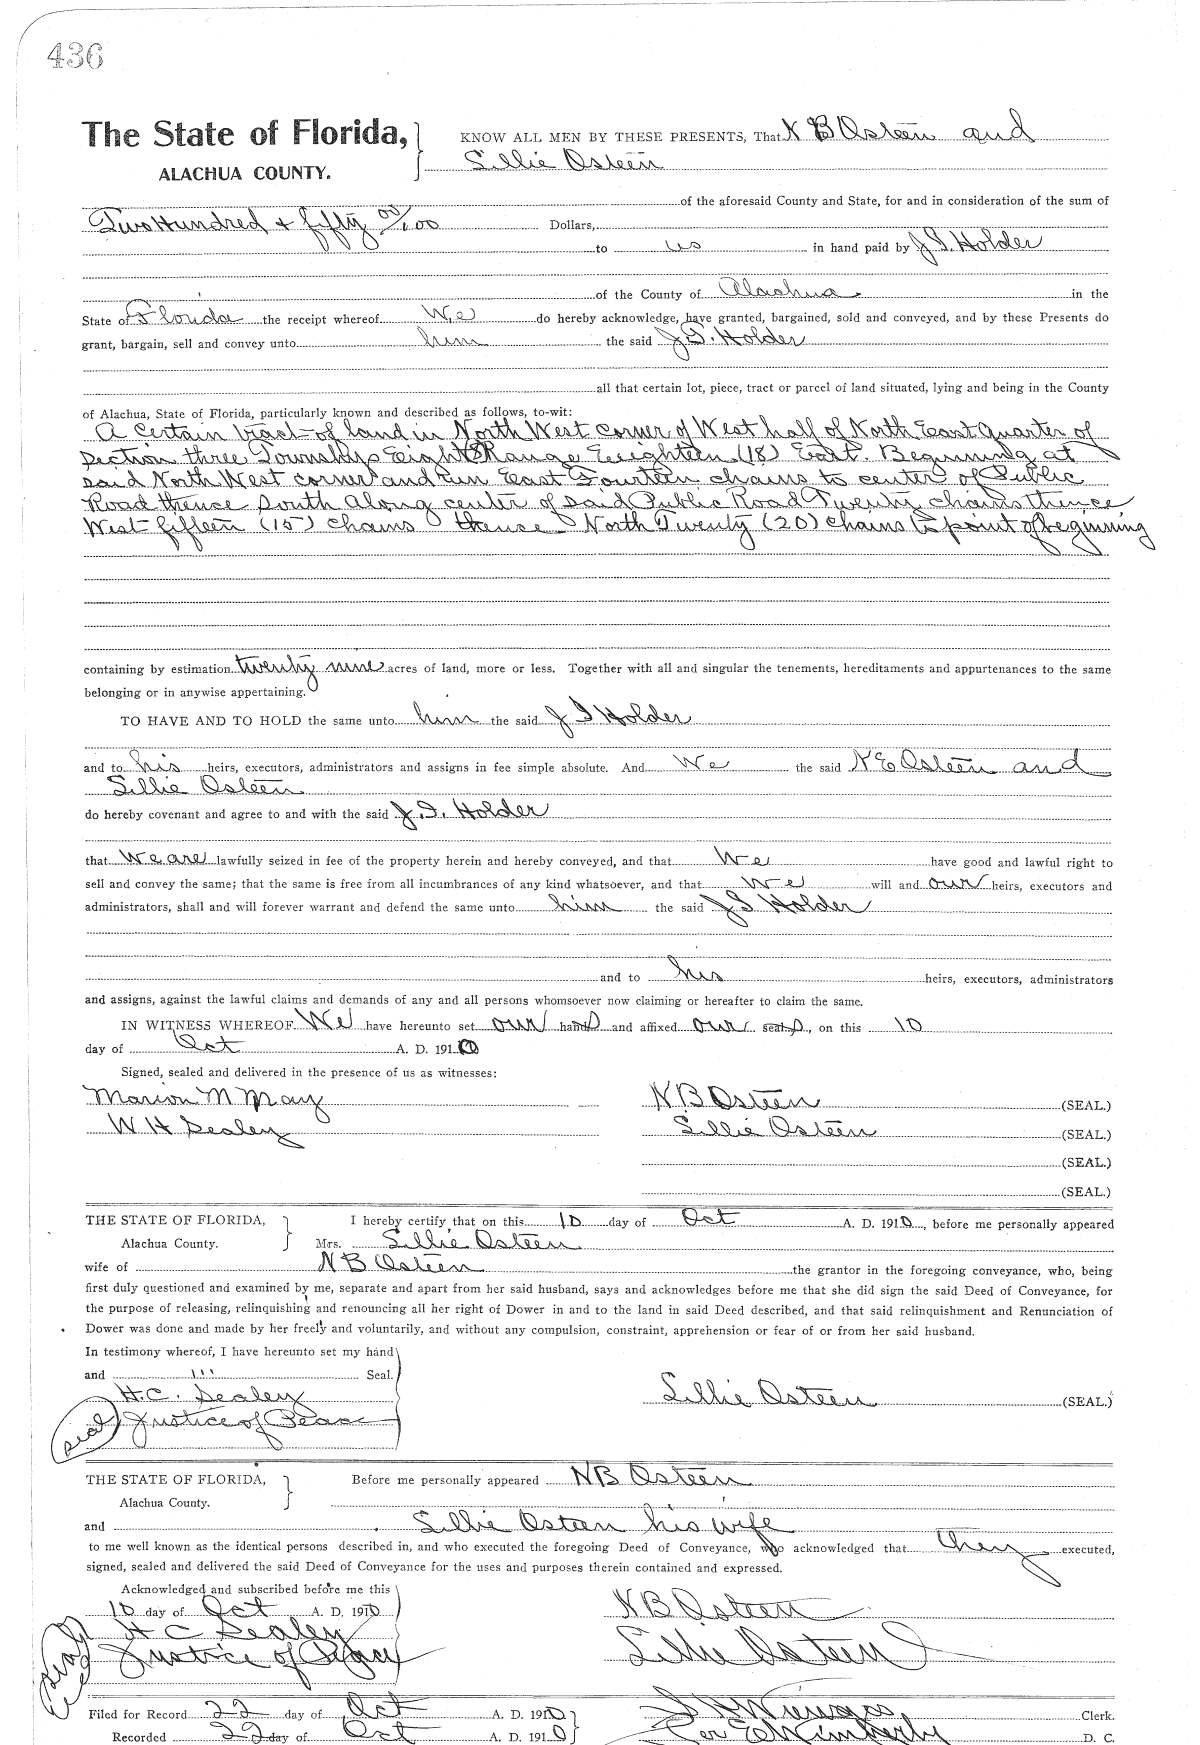 436
The State of Florida,
ALACHUA COUNTY.
KNOW ALL MEN BY THESE PRESENTS, That N B Osteen and
Lillie Osteen
of the aforesaid County and State, for and in consideration of the sum of
Two Hundred + fifty 00/100 Dollars,
to us in hand paid by J. I. Holder
of the County of Alachua in the
State of Florida the receipt whereof We do hereby acknowledge, have granted, bargained, sold and conveyed, and by these Presents do
grant, bargain, sell and convey unto him the said J. I. Holder
all that certain lot, piece, tract or parcel of land situated, lying and being in the County
of Alachua, State of Florida, particularly known and described as follows, to-wit:
A certain tract of land in North West corner of West half of North East quarter of
Section three Township Eight Range Eighteen (18) East. Beginning at
said North West corner and run East Fourteen chains to center of Public
Road thence South along center of said Public Road Twenty chains thence
West fifteen (15) chains thence North Twenty (20) chains to point of beginning
containing by estimation twenty nine acres of land, more or less. Together with all and singular the tenements, hereditaments and appurtenances to the same
belonging or in anywise appertaining.
TO HAVE AND TO HOLD the same unto him the said J I Holder
and to his heirs, executors, administrators and assigns in fee simple absolute. And We the said N E Osteen and
Lillie Osteen
do hereby covenant and agree to and with the said J. I. Holder
that we are lawfully seized in fee of the property herein and hereby conveyed, and that We have good and lawful right to
sell and convey the same; that the same is free from all incumbrances of any kind whatsoever, and that We will and our heirs, executors and
administrators, shall and will forever warrant and defend the same unto him the said J I Holder
and to his heirs, executors, administrators
and assigns, against the lawful claims and demands of any and all persons whomsoever now claiming or hereafter to claim the same.
IN WITNESS WHEREOF We have hereunto set our hands and affixed our seals, on this 10
day of Oct A. D. 1910
Signed, sealed and delivered in the presence of us as witnesses:
Marion M May N B Osteen (SEAL.)
W H Sealey Lillie Osteen (SEAL.)
(SEAL.)
(SEAL.)
THE STATE OF FLORIDA, I hereby certify that on this 10 day of Oct A. D. 1910, before me personally appeared
Alachua County. Mrs. Lillie Osteen
wife of N B Osteen the grantor in the foregoing conveyance, who, being
first duly questioned and examined by me, separate and apart from her said husband, says and acknowledges before me that she did sign the said Deed of Conveyance, for
the purpose of releasing, relinquishing and renouncing all her right of Dower in and to the land in said Deed described, and that said relinquishment and Renunciation of
Dower was done and made by her freely and voluntarily, and without any compulsion, constraint, apprehension or fear of or from her said husband.
In testimony whereof, I have hereunto set my hand
and Seal.
H. C. Sealey Lillie Osteen (SEAL.)
seal Justice of Peace
THE STATE OF FLORIDA, Before me personally appeared N B Osteen
Alachua County.
and Lillie Osteen his wife
to me well known as the identical persons described in, and who executed the foregoing Deed of Conveyance, who acknowledged that they executed,
signed, sealed and delivered the said Deed of Conveyance for the uses and purposes therein contained and expressed.
Acknowledged and subscribed before me this
10 day of Oct A. D. 1910 N B Osteen
H C Sealey Lillie Osteen
Justice of Peace
Filed for Record 22 day of Oct A. D. 1910 Clerk.
Recorded 22 day of Oct A. D. 1910 Per Kimberly D. C.